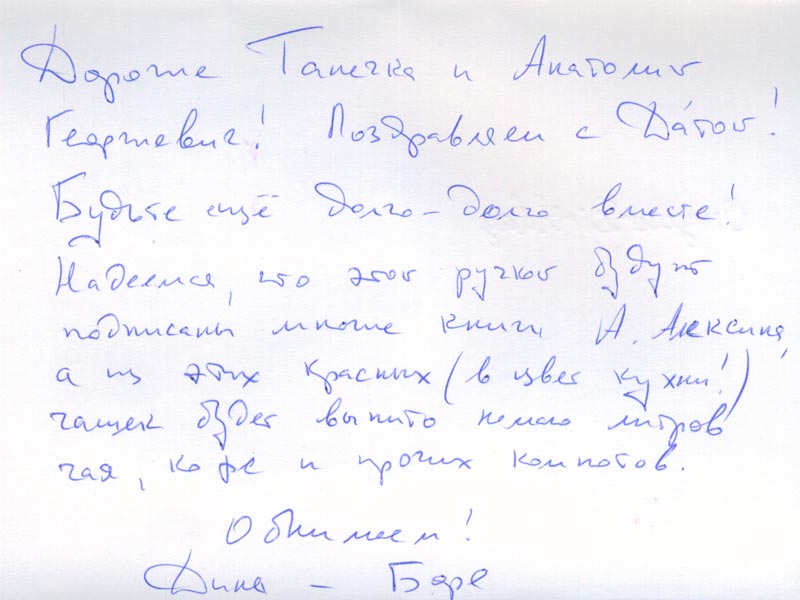 Дорогие Танечка и Анатолий
Георгиевич! Поздравляем с Да́той!
Будьте ещё долго-долго вместе!
Надеемся, что этой ручкой будут
подписаны многие книги А. Алексина,
а из этих красных (в цвет кухни!)
чашек будет выпито немало литров
чая, кофе и прочих компотов.
Обнимаем!
Дина –